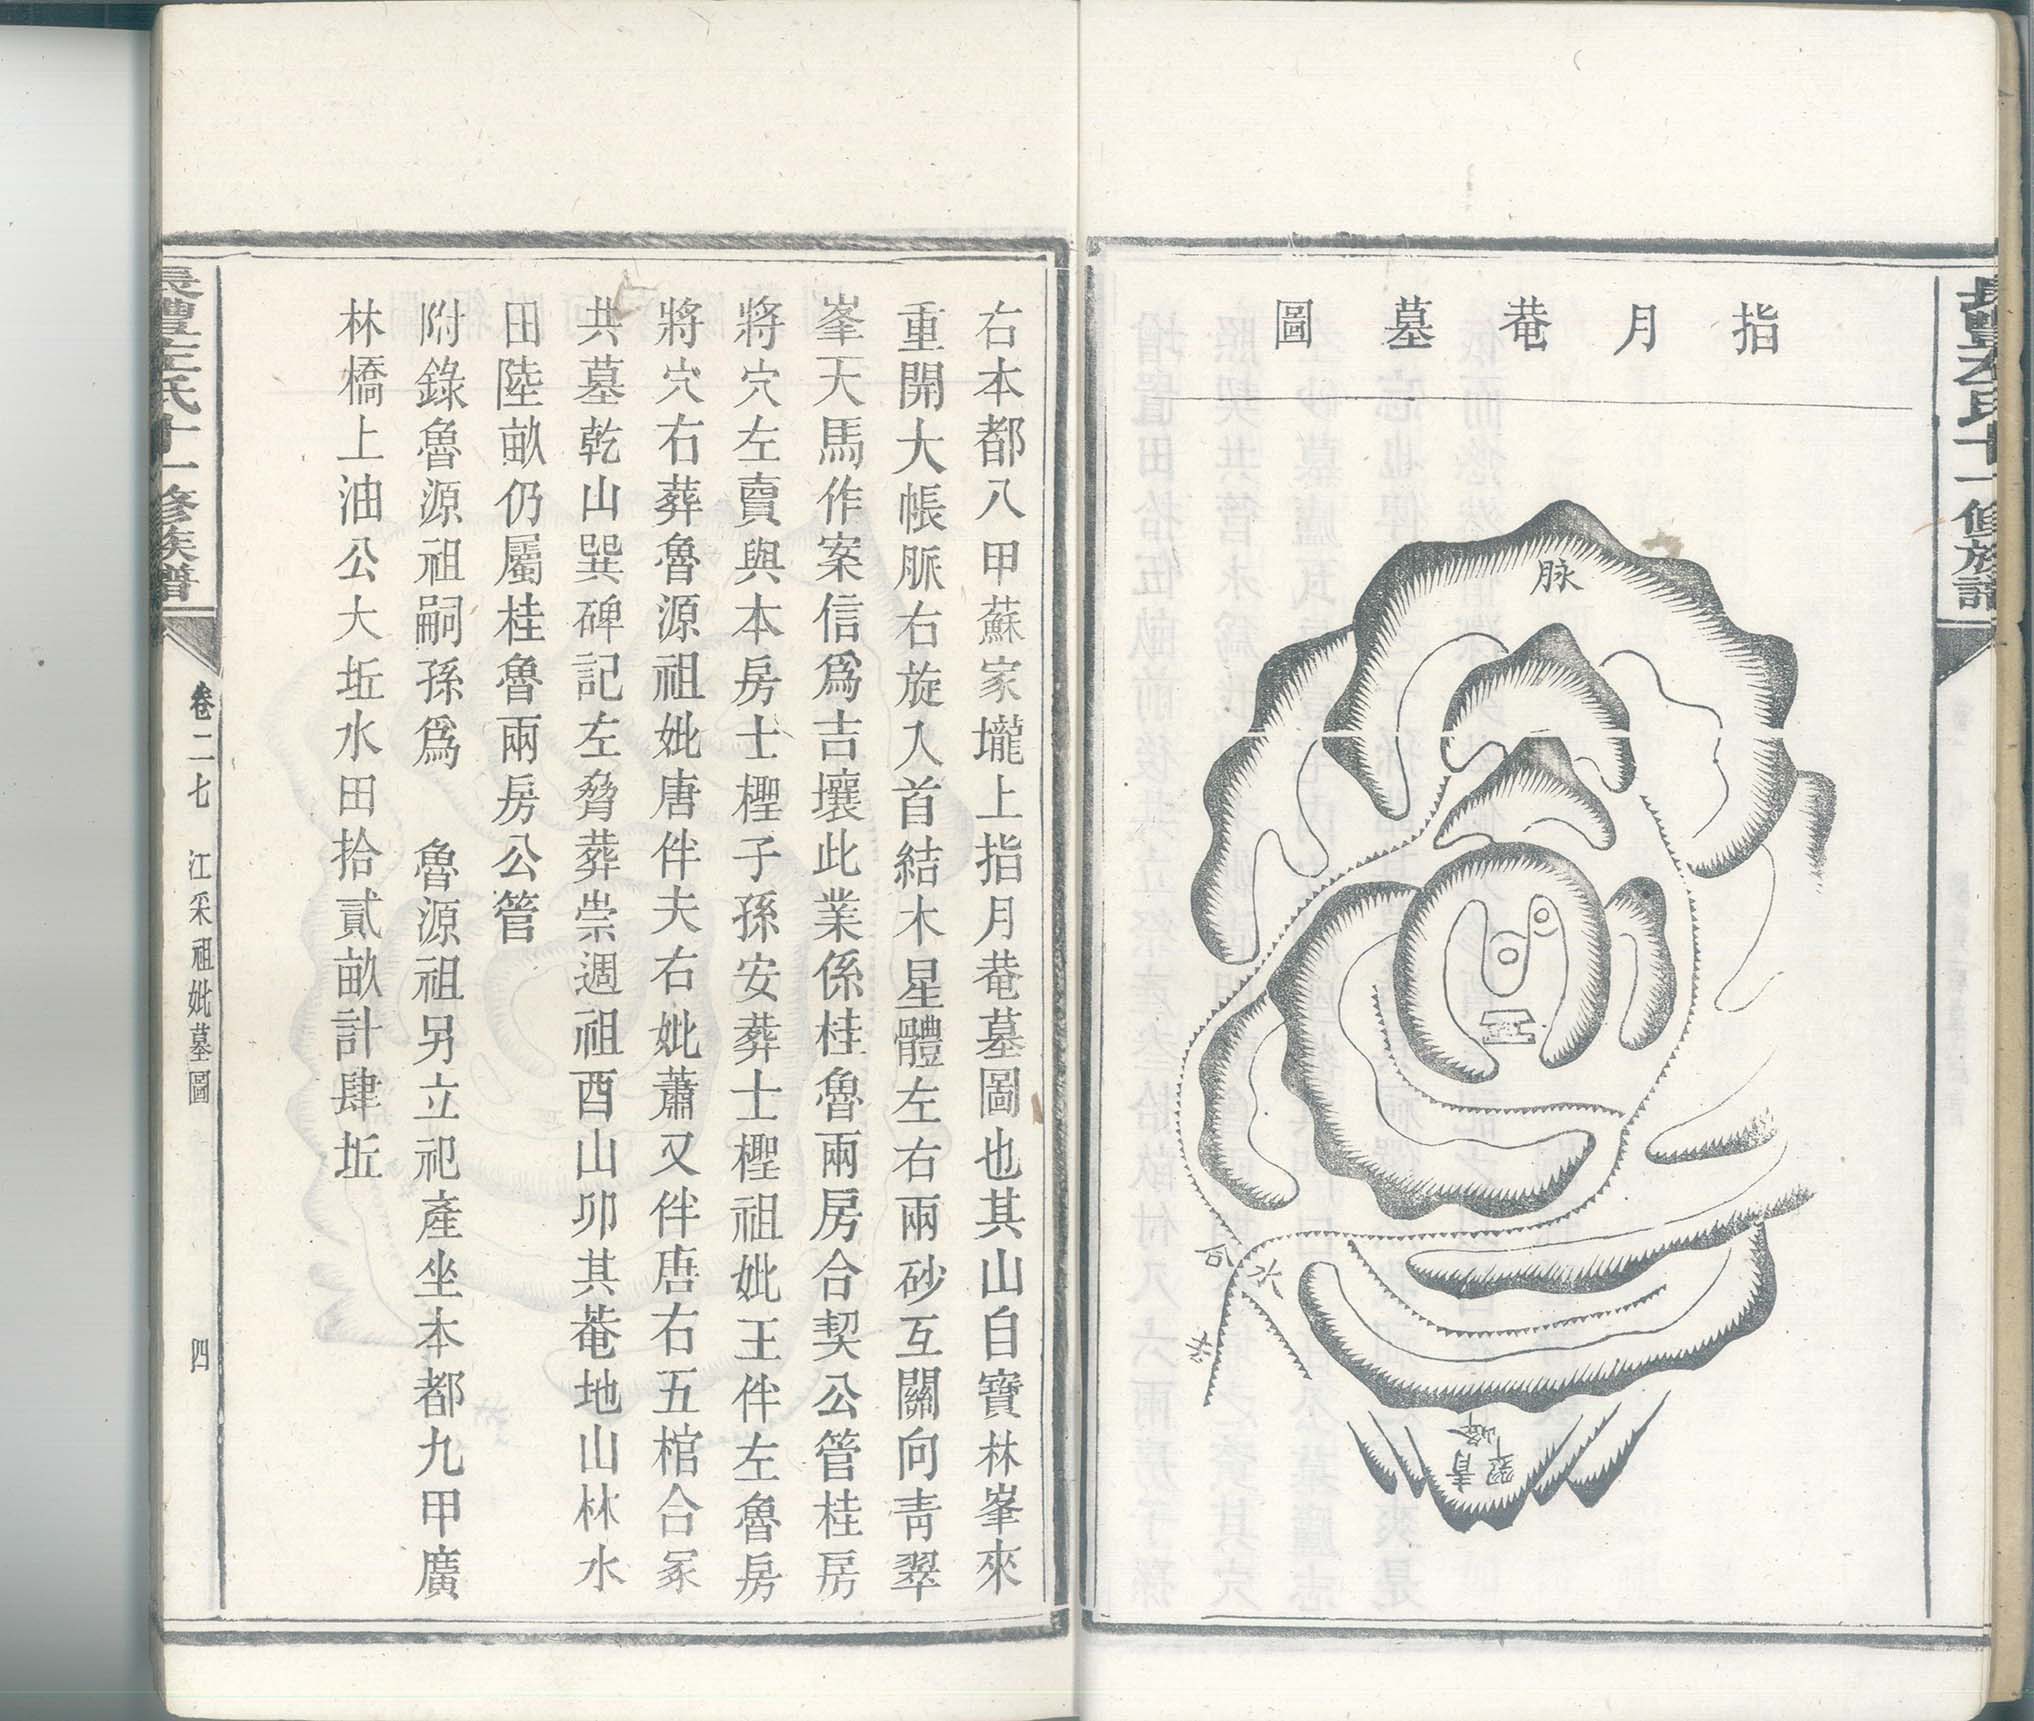 指月菴墓圖
脉
翠峰
青
右本都八甲蘇家壠上指月菴墓圖也其山自寶林峯來
重開大帳脈右旋入首結木星體左右兩砂互關向青翠
峯天馬作案信爲吉壤此業係桂魯兩房合契公管桂房
將穴左賣與本房士檉子孫安葬士檉祖妣王伴左魯房
將穴右葬魯源祖妣唐伴夫右妣蕭又伴唐右五棺合冢
共墓乾山巽碑記左脅葬崇週祖酉山卯其菴地山林水
田陸畝仍屬桂魯兩房公管
附錄魯源祖嗣孫爲 魯源祖另立祀產坐本都九甲廣
林橋上油公大坵水田拾貳畝計肆坵
卷二七 江采祖妣墓圖 四